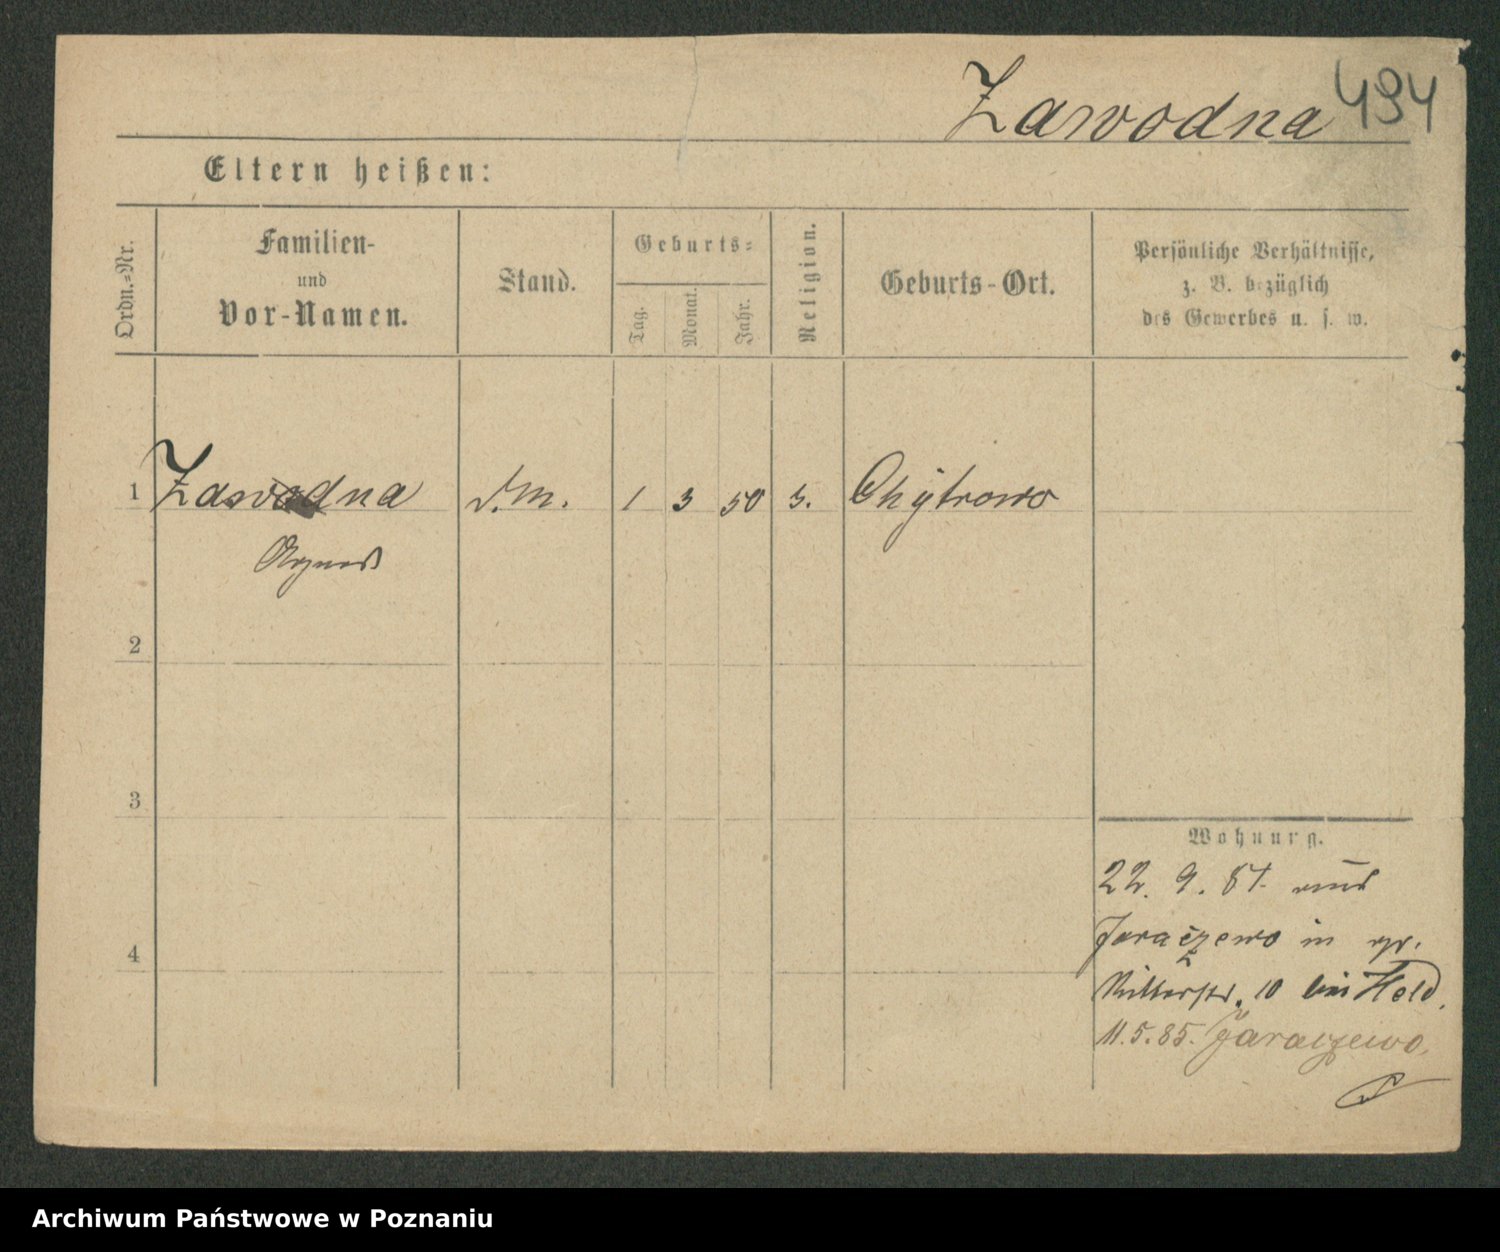 Zawodna 494
Eltern heißen:
Ordn.-Nr.
Familien-
und
Vor-Namen.
Stand.
Geburts-
Tag.
Monat.
Jahr.
Religion.
Geburts-Ort.
Persönliche Verhältnisse,
z. B. bezüglich
des Gewerbes u. s. w.
1 Zawodna d. M. 1 3 50 Chÿtrowo
Agnes
2
3
4
Wohnung.
22. 9. 84. aus
Jaraczewo in gr.
Ritterstr. 10 bei Held.
11. 5. 85. Jaraczewo.
Archiwum Państwowe w Poznaniu